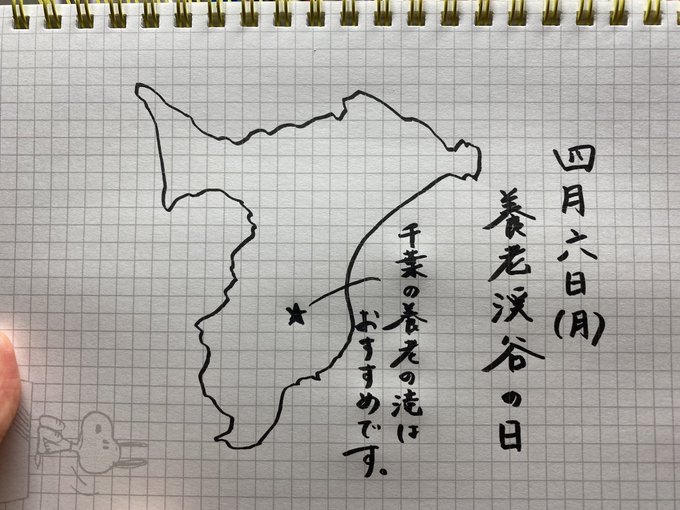 四月六日(月)
養老渓谷の日
千葉の養老の滝は
おすすめです。